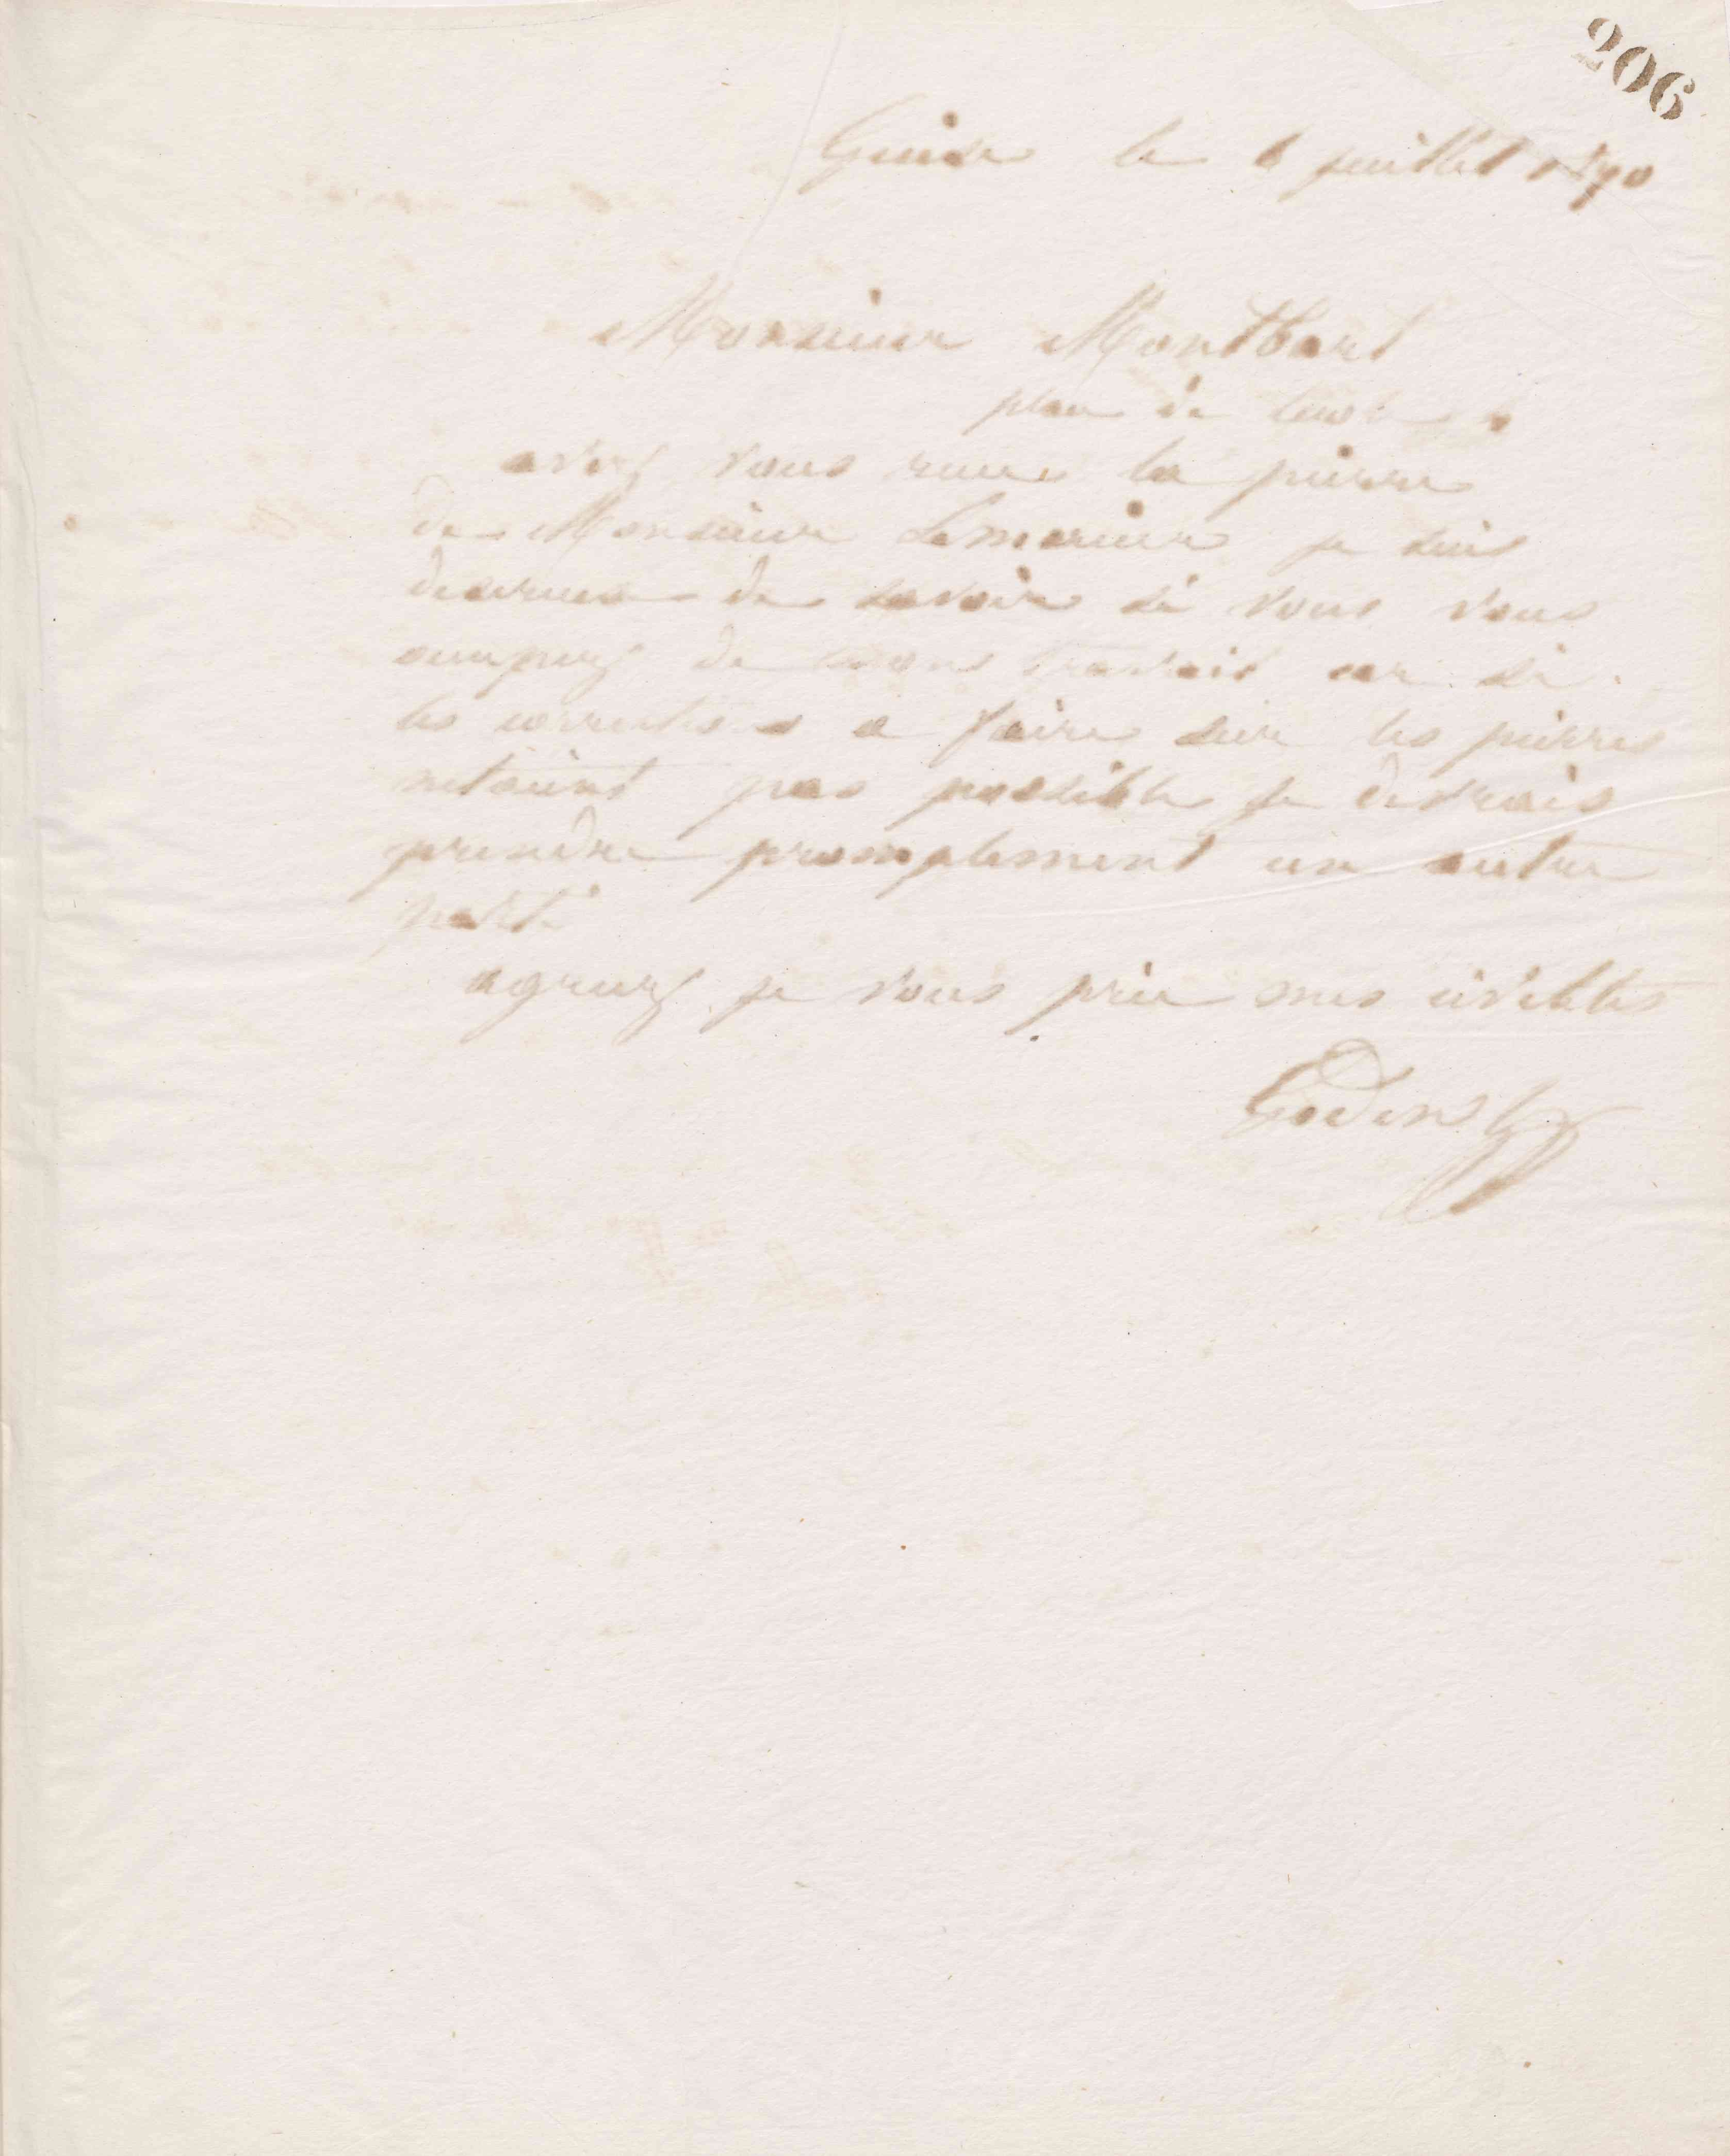 206
Guise le 6 juillet 1870
Monsieur Montbart
avez vous recu la pierre
de Monsieur Lemercier je suis
desireux de savoir si vous vous
occupez de mon travail car si
les corrections a faire sur les pierres
netaient pas possibles je devrais
prendre promptement un autre
parti
agreez je vous prie mes civilites
Godin